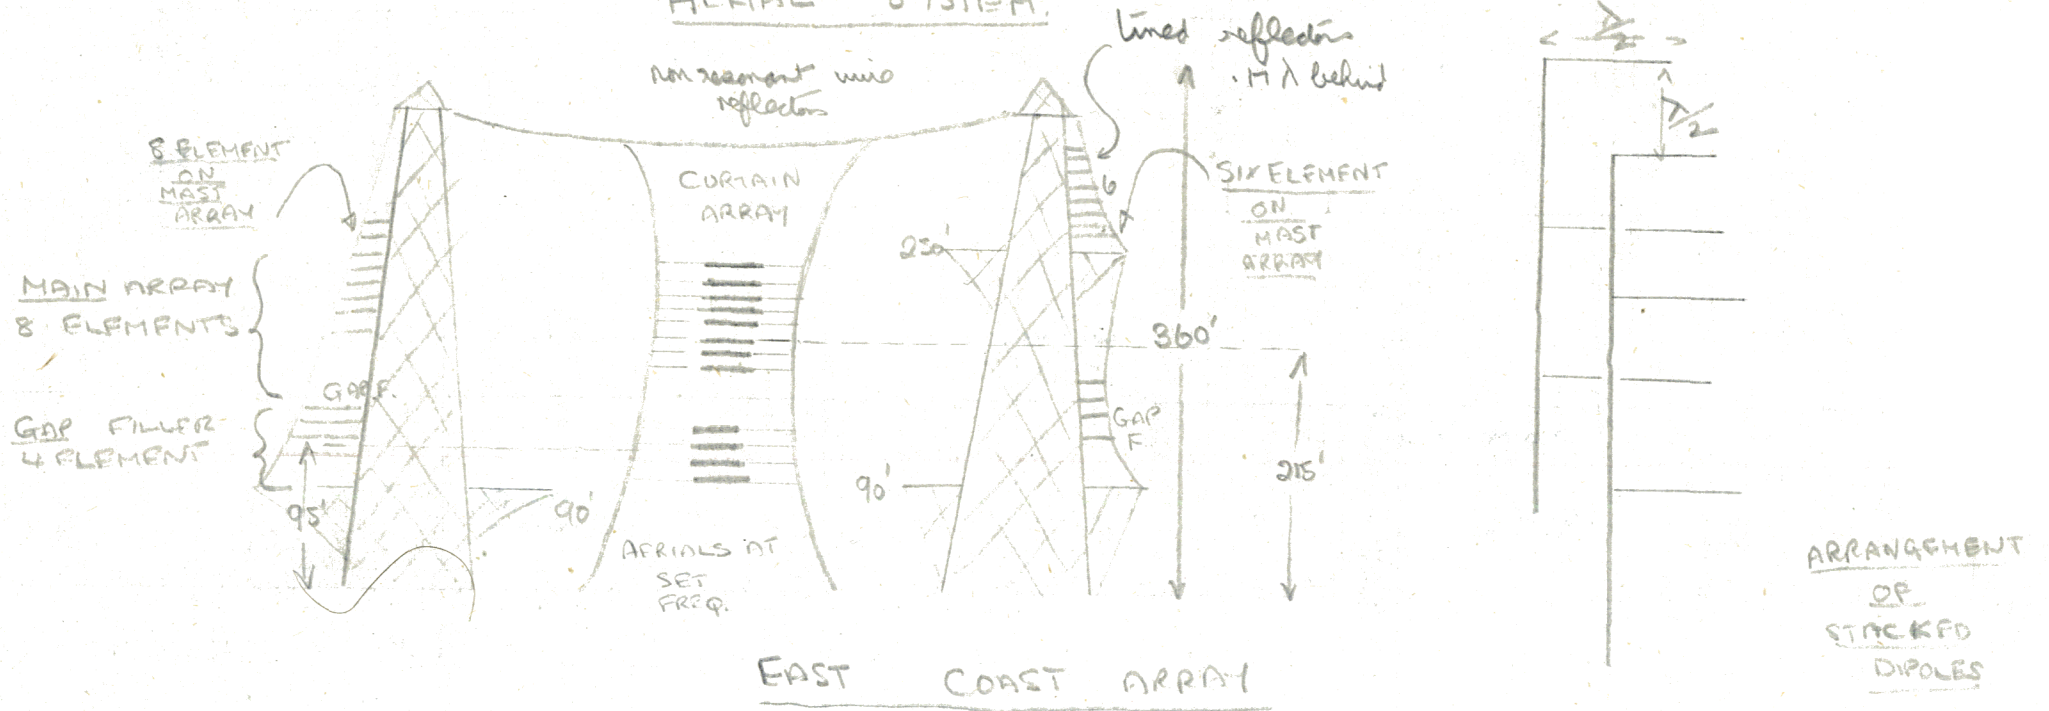 AERIAL SYSTEM.
non resonant wire
reflectors
tuned reflectors
λ behind
8 ELEMENT
ON
MAST
ARRAY
MAIN ARRAY
8 ELEMENTS
GAP F.
GAP FILLER
4 ELEMENT
95'
90'
CURTAIN
ARRAY
AERIALS AT
SET
FREQ.
250'
90'
6
GAP
F.
SIX ELEMENT
ON
MAST
ARRAY
360'
215'
λ/2
λ/2
ARRANGEMENT
OF
STACKED
DIPOLES
EAST COAST ARRAY